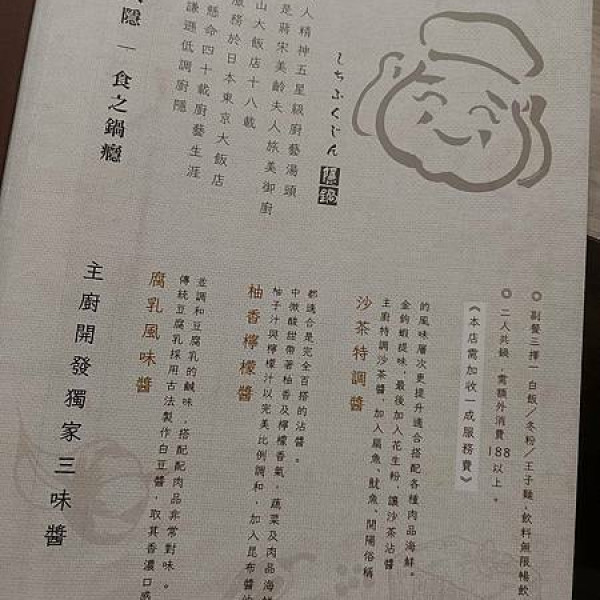 しちふくじん
隱鍋
人精神五星級廚藝湯頭
是蔣宋美齡夫人旅美御廚
山大飯店十八載
服務於日本東京大飯店
懸命四十載廚藝生涯
謙遜低調廚隱
隱 — 食之鍋癮
主廚開發獨家三味醬
腐乳風味醬
傳統豆腐乳採用古法製作白豆醬，取其香濃口感
並調和豆腐乳的鹹味，搭配配肉品非常對味。
柚香檸檬醬
柚子汁與檸檬汁以完美比例調和，加入昆布醬油
中微酸甜帶著柚香及檸檬香氣，蔬菜及肉品海鮮
都適合是完全百搭的沾醬。
沙茶特調醬
主廚特調沙茶醬，加入扁魚、魷魚、開陽俗稱
金鉤蝦提味，最後加入花生粉，讓沙茶沾醬
的風味層次更提升適合搭配各種肉品海鮮。
《本店需加收一成服務費》
◎ 二人共鍋，需額外消費188以上。
◎ 副餐三擇一 白飯／冬粉／王子麵、飲料無限暢飲